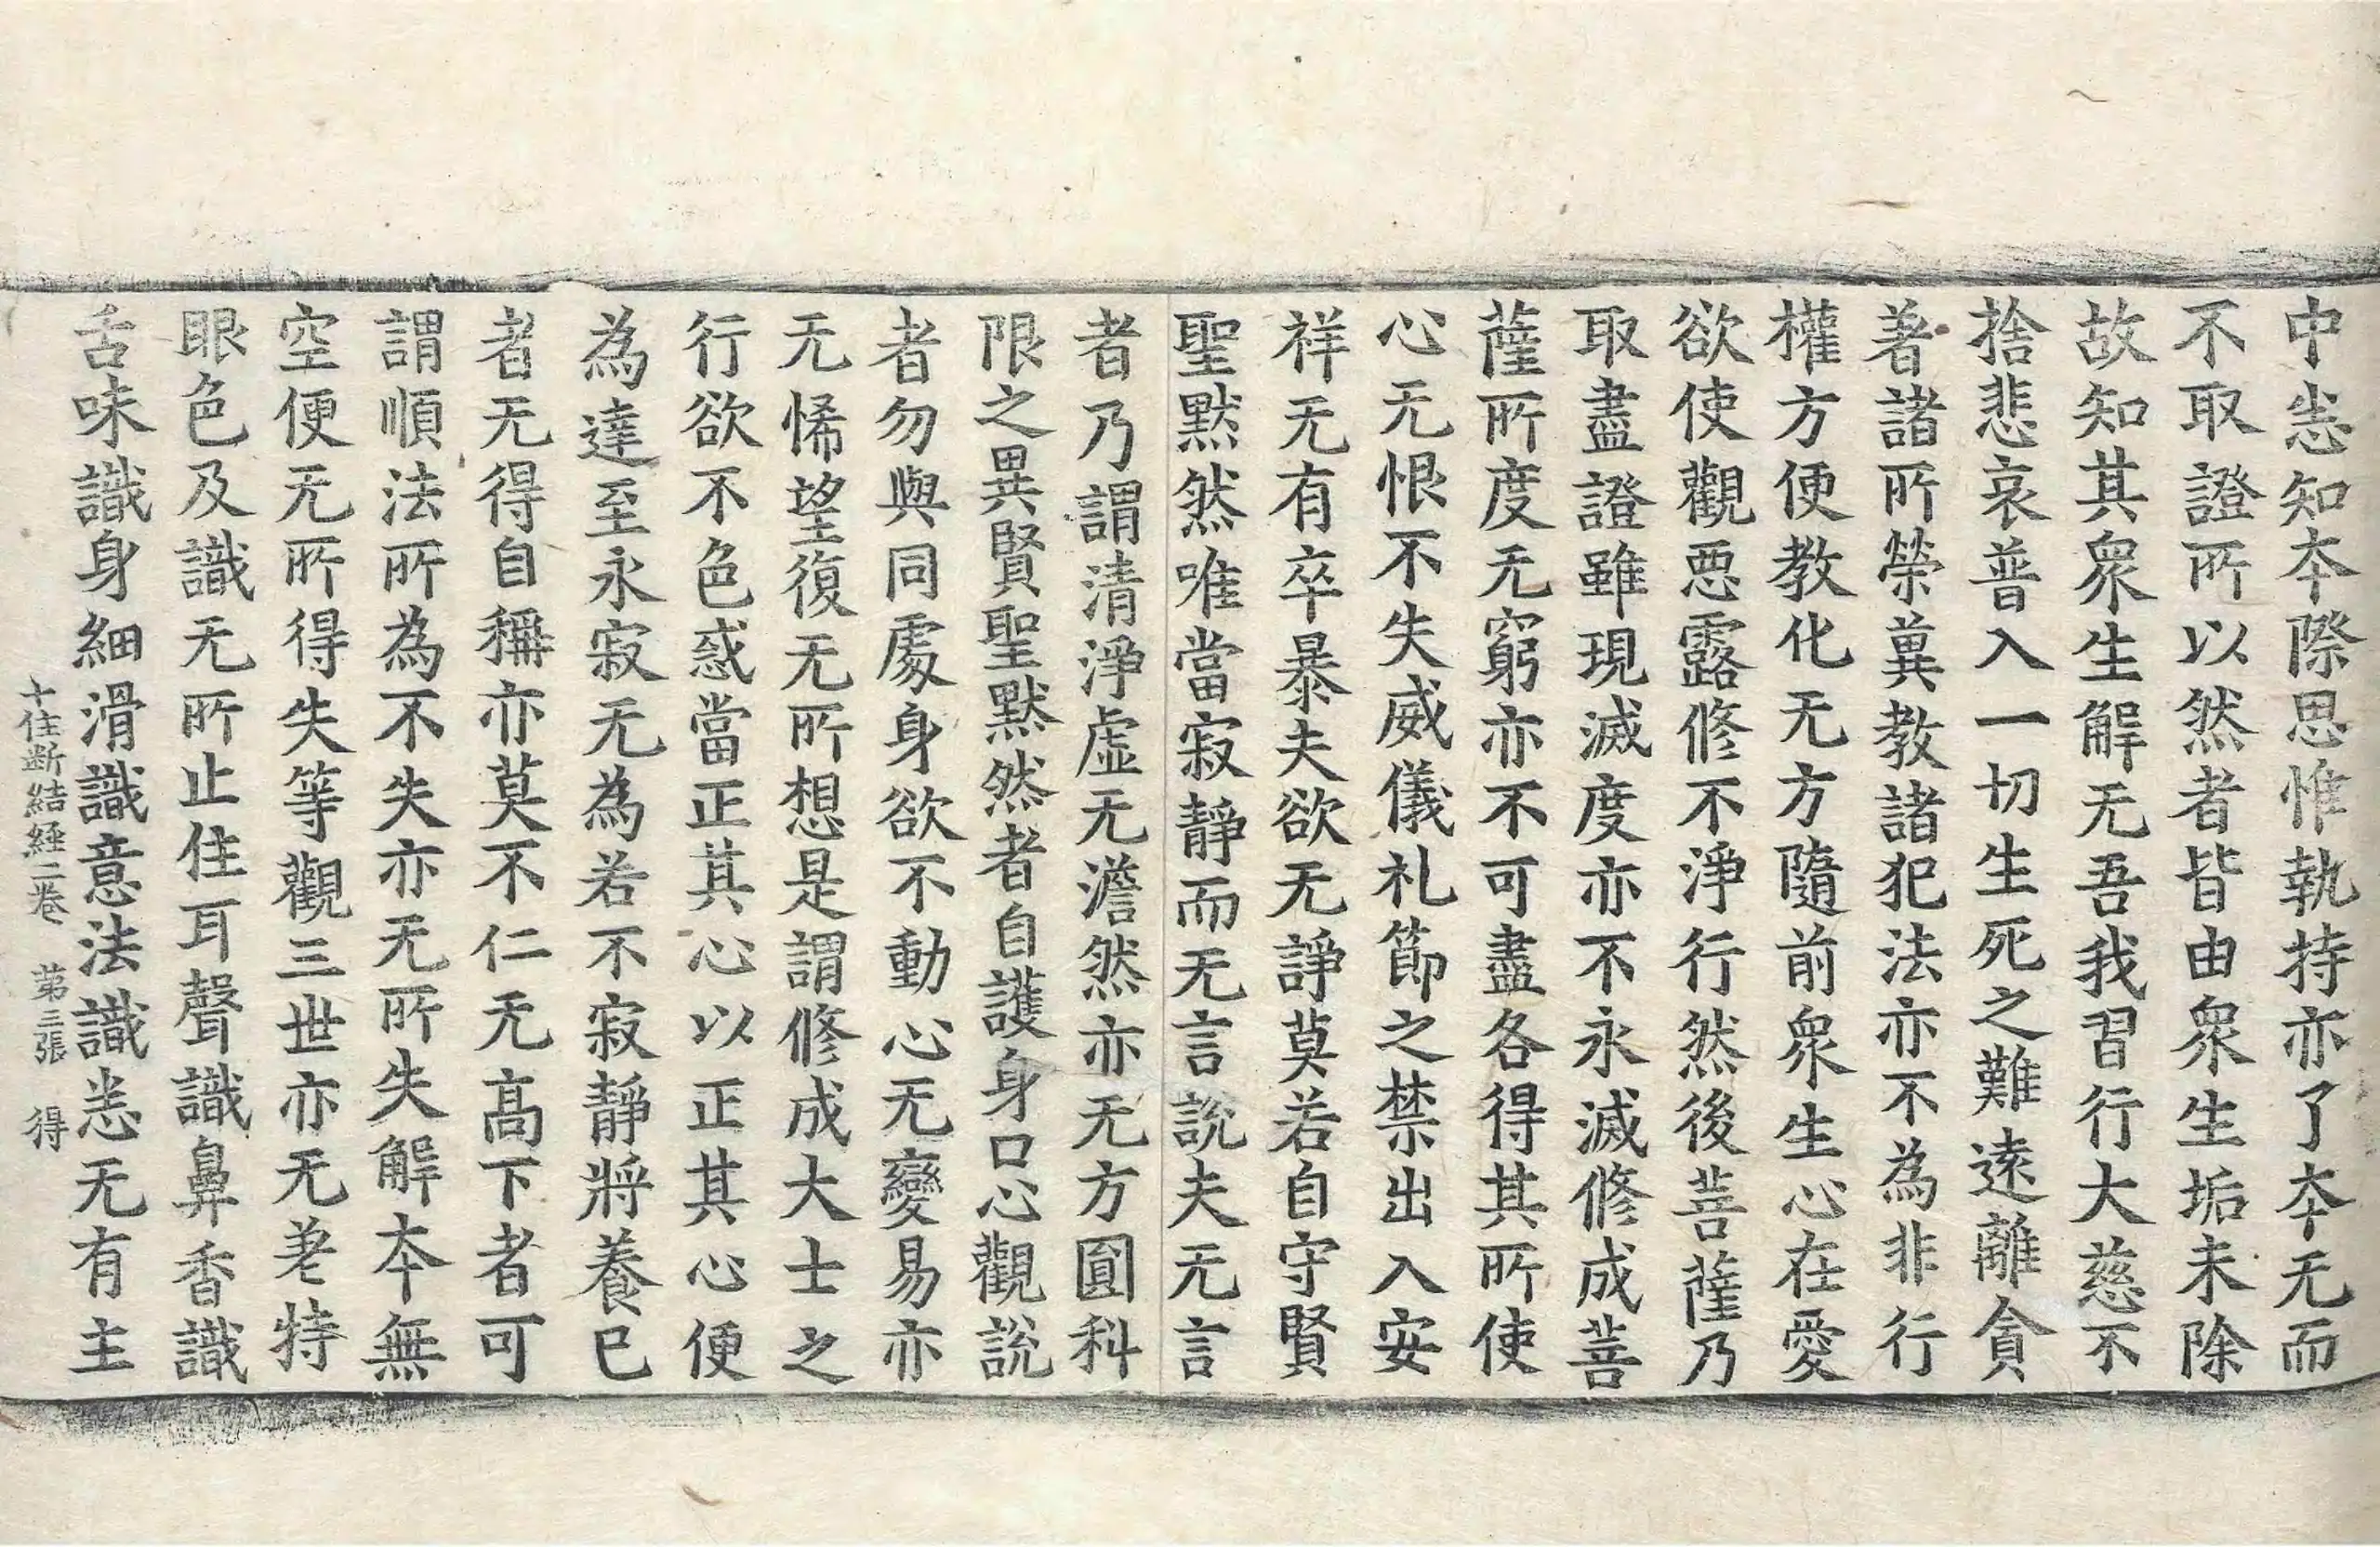 中恙知夲際思惟執持亦了夲无而
不取證所以然者皆由衆生垢未除
故知其衆生解无吾我習行大慈不
捨悲哀普入一切生死之難遠離貪
著諸所榮冀教諸犯法亦不為非行
權方便教化无方隨前衆生心在愛
欲使觀惡露修不淨行然後菩薩乃
取盡證雖現滅度亦不永滅修成菩
薩所度无窮亦不可盡各得其所使
心无恨不失威儀礼節之禁出入安
祥无有卒暴夫欲无諍莫若自守賢
聖默然唯當寂靜而无言說夫无言
者乃謂清淨虛无澹然亦无方圓科
限之異賢聖默然者自護身口心觀說
者勿與同處身欲不動心无變易亦
无悕望復无所想是謂修成大士之
行欲不色惑當正其心以正其心便
為達至永寂无為若不寂靜將養已
者无得自稱亦莫不仁无高下者可
謂順法所為不失亦无所失解夲無
空便无所得失等觀三世亦无差特
眼色及識无所止住耳聲識鼻香識
舌味識身細滑識意法識恙无有主
十住斷結經二卷 第三張 得